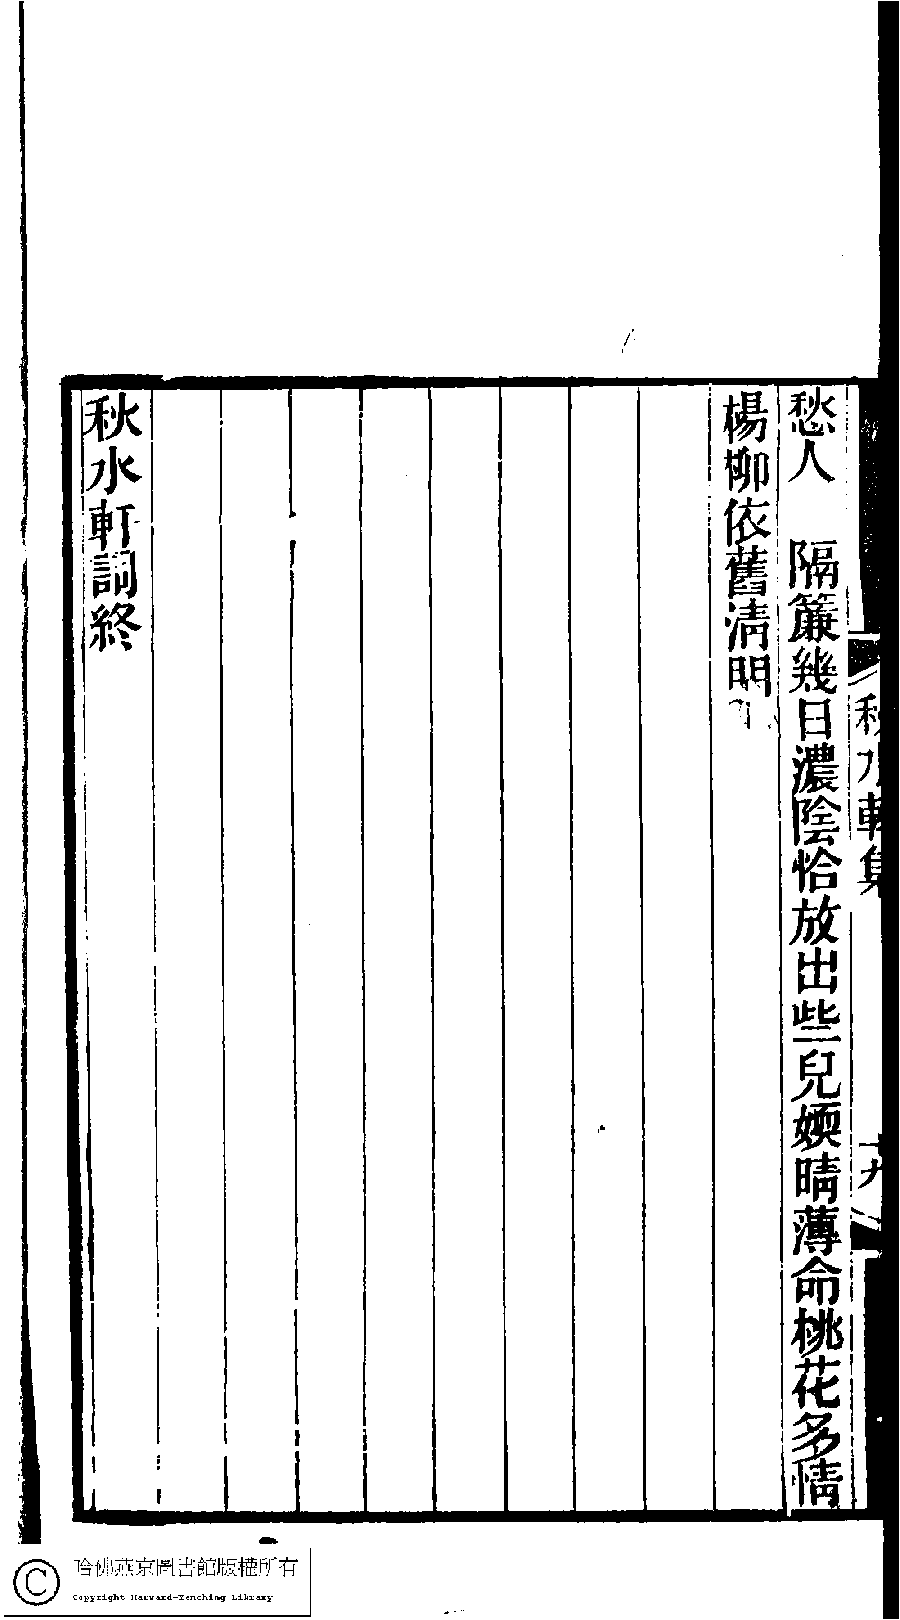 愁人　隔簾幾日濃陰恰放出些兒㬉晴薄命桃花多情
楊柳依舊清明
秋水軒詞終
秋水軒集
十九
哈佛燕京圖書館版權所有
Copyright Harvard-Yenching Library